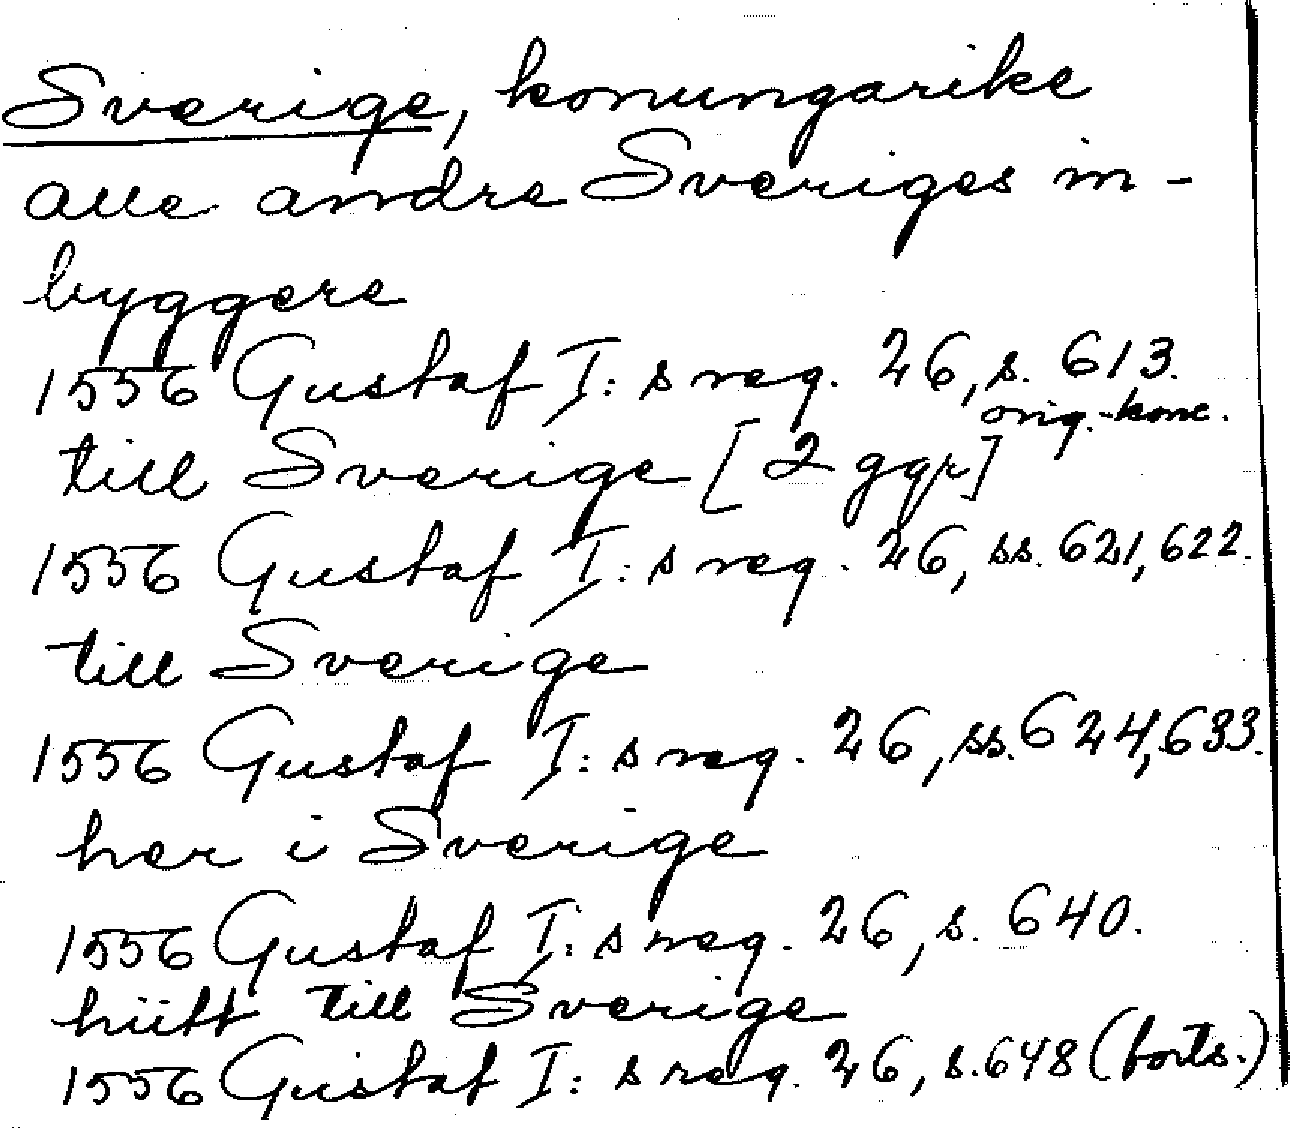 Sverige, konungarike
alle andre Sveriges in-
byggere
1556 Gustaf I:s reg. 26, s. 613.
orig.-konc.
till Sverige [2 ggr]
1556 Gustaf I:s reg. 26, ss. 621, 622.
till Sverige
1556 Gustaf I:s reg. 26, ss. 624, 633.
her i Sverige
1556 Gustaf I:s reg. 26, s. 640.
hiitt till Sverige
1556 Gustaf I:s reg. 26, s. 648 (forts.)